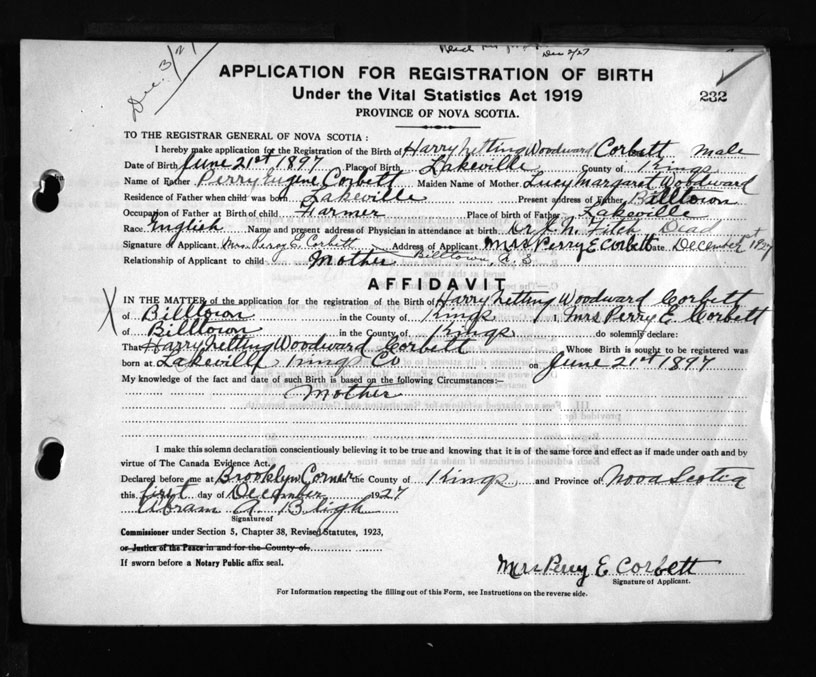 Dec. 3/27
Dec 2/27
APPLICATION FOR REGISTRATION OF BIRTH
Under the Vital Statistics Act 1919
232
PROVINCE OF NOVA SCOTIA.
TO THE REGISTRAR GENERAL OF NOVA SCOTIA:
I hereby make application for the Registration of the Birth of Harry Netting Woodward Corbett male
Date of Birth June 21st 1897 Place of Birth Lakeville County of Kings
Name of Father Perry Eugene Corbett Maiden Name of Mother Lucy Margaret Woodward
Residence of Father when child was born Lakeville Present address of Father Billtown
Occupation of Father at Birth of child Farmer Place of birth of Father Lakeville
Race English Name and present address of Physician in attendance at birth Dr. J. N. Fitch Dead
Signature of Applicant Mrs. Percy E. Corbett Address of Applicant Mrs Perry E Corbett Date December 1st 1927
Billtown, N. S
Relationship of Applicant to child Mother
AFFIDAVIT
X IN THE MATTER of the application for the registration of the Birth of Harry Netting Woodward Corbett
of Billtown in the County of Kings I, Mrs Perry E. Corbett
of Billtown in the County of Kings do solemnly declare:
That Harry Netting Woodward Corbett Whose Birth is sought to be registered was
born at Lakeville Kings Co on June 21st 1897
My knowledge of the fact and date of such Birth is based on the following Circumstances:—
Mother
I make this solemn declaration conscientiously believing it to be true and knowing that it is of the same force and effect as if made under oath and by
virtue of The Canada Evidence Act.
Declared before me at Brooklyn Corner in the County of Kings and Province of Nova Scotia
this first day of December 1927
Abram A. Bligh
Signature of
Commissioner under Section 5, Chapter 38, Revised Statutes, 1923,
or Justice of the Peace in and for the County of
If sworn before a Notary Public affix seal.
Mrs Perry E Corbett
Signature of Applicant.
For Information respecting the filling out of this Form, see Instructions on the reverse side.